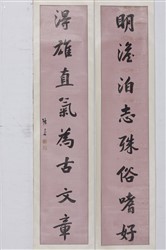 明澹泊志殊俗嗜好
得雄直氣為古文章